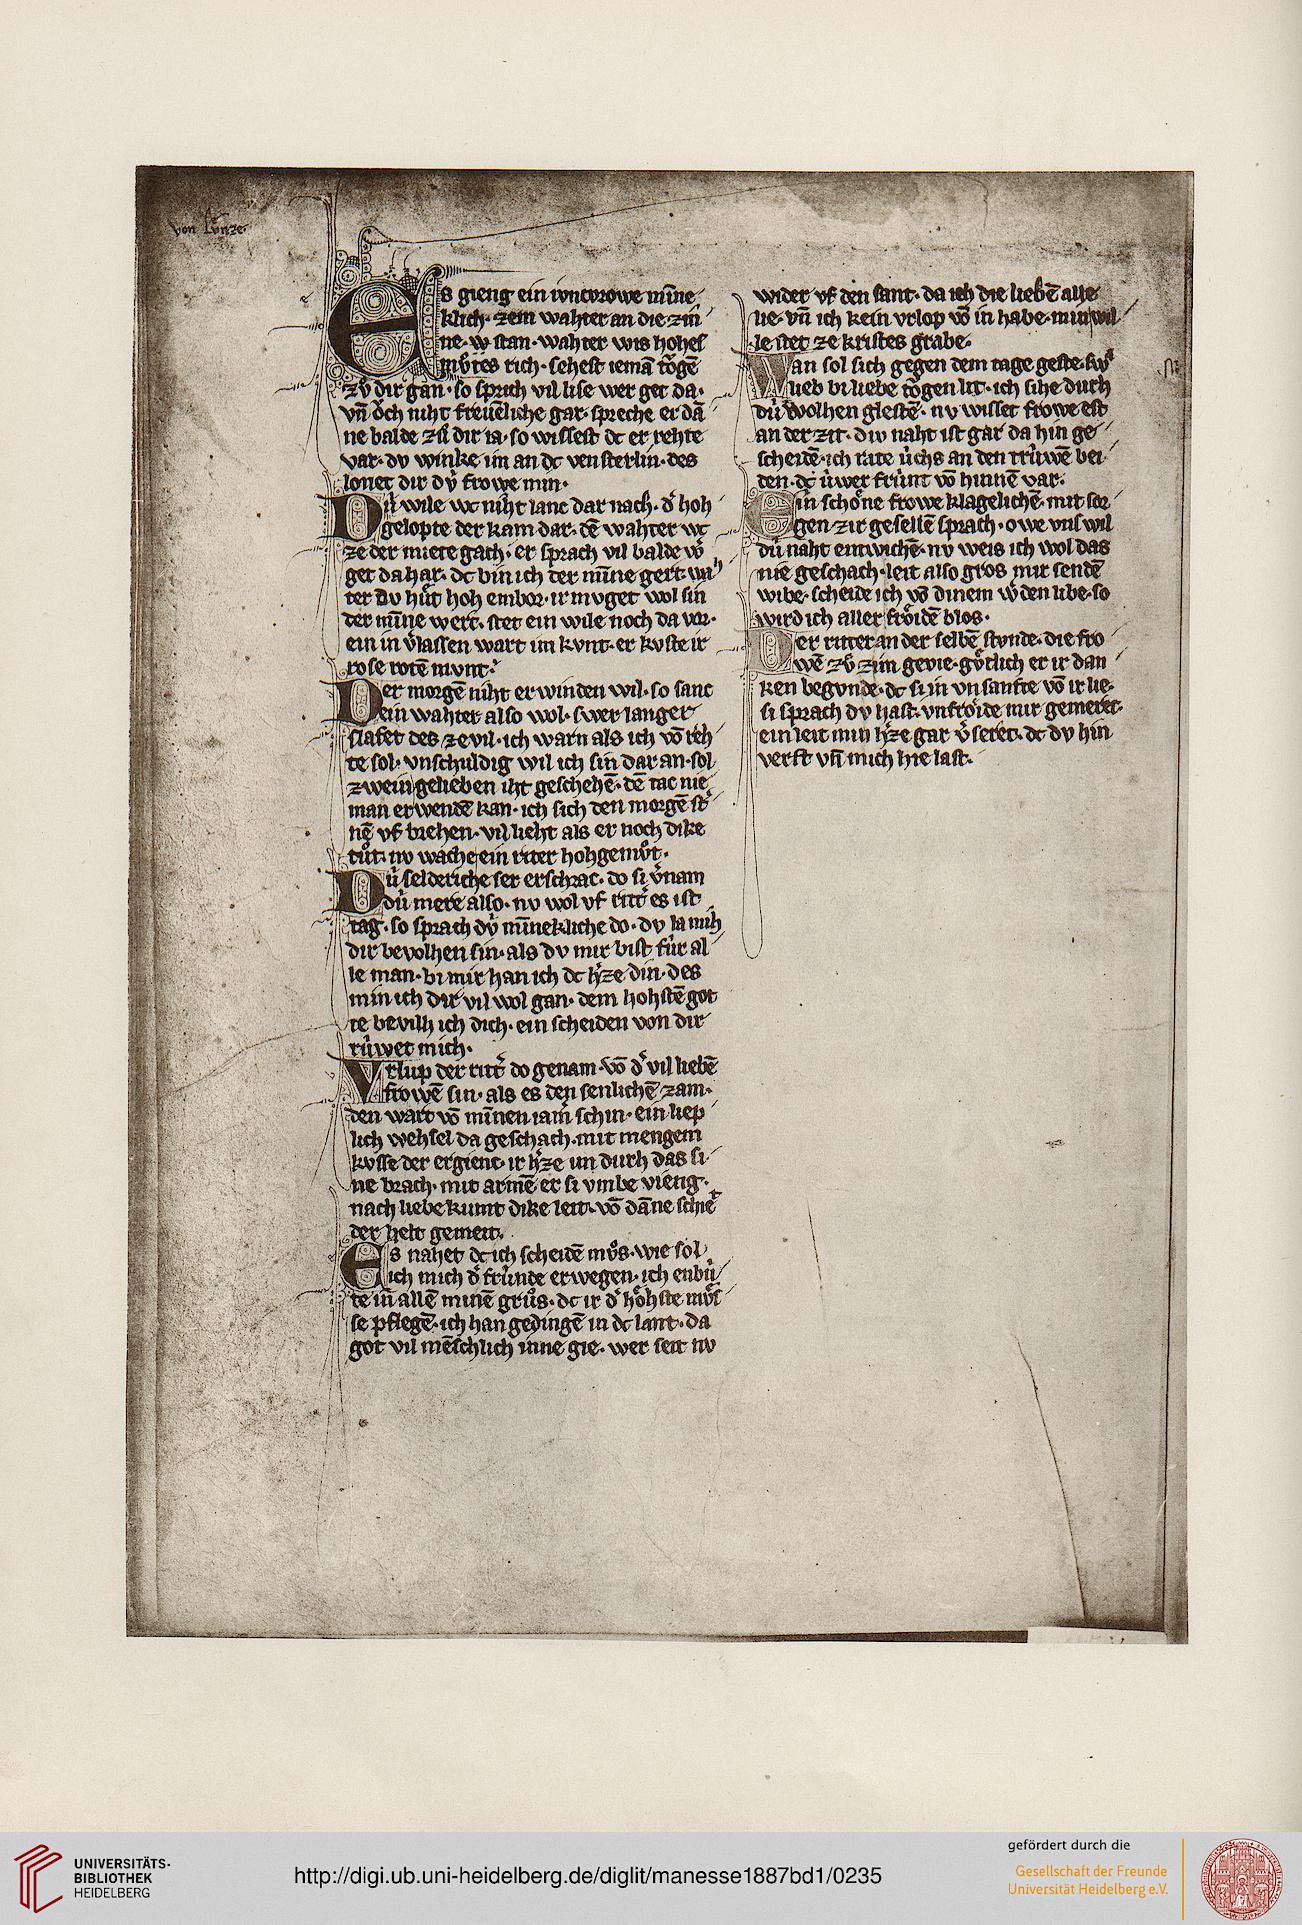 von Lvnze.
Es gieng ein ivncvrowe mīne
klich. zem wahter an die zin̄
ne. stan. wahter wis hohes
mv̊tes rich. sehest iemā tǒgē
zv̊ dir gan. so sprich vil lise wer get da.
vn̄ doch niht frevēliche gar. spreche er dā
ne balde zů dir ia. so wissest dc er rehte
var. dv winke im an dc vensterlin. des
lonet dir dv̍ frowe min.
Dv̍ wile wc niht lanc dar nach. d' hoh
gelopte der kam dar. dē wahter wc
ze der miete gach. er sprach vil balde w'
get da har. dc bin ich der mīne gert. wah
ter dv hůt hoh embor. ir mvget wol sin
der mīne wert. stet ein wile noch da vor.
ein in v'lassen wart im kvnt. er kvste ir
rose rotē mvnt.
Der morgē niht erwinden wil. so sanc
ein wahter also wol. swer langer
slafet des ze vil. ich warn als ich vō reh
te sol. vnschuldig wil ich sin dar an. sol
zwein gelieben iht geschehē. dē tac nie
man erwendē kan. ich sich den morgē st'
nē vf brehen. vil lieht als er noch dike
tůt. nv wache ein riter hohgemůt.
Dv̍ selderiche ser erschrac. do si v'nam
dv̍ mere also. nv wol vf ritt' es ist
tag. so sprach dv̍ mīnekliche do. dv la mih
dir bevolhen sin. als dv mir bist fu̍r al
le man. bi mir han ich dc h'ze din. des
min ich dir vil wol gan. dem hohstē got
te bevilh ich dich. ein scheiden von dir
ru̍wet mich.
Vrlup der ritt' do genam. vō d' vil liebē
frowē sin. als es den senlichē zam.
den wart vō mīnen iam' schin. ein liep
lich wehsel da geschach. mit mengem
kvsse der ergienc. ir h'ze im durh das si
ne brach. mit armē er si vmbe vieng.
nach liebe kumt dike leit. vō dāne schiet
der helt gemeit.
Es nahet dc ich scheidē můs. wie sol
ich mich d' fru̍nde erwegen. ich enbu̍
te in allē minē grůs. dc ir d' hǒhste mv̊s
se pflegē. ich han gedingē in dc lant. da
got vil mēschlich inne gie. wer seit nv
wider vf den sant. da ich die liebē alle
lie. vn̄ ich kein vrlop vō in habe. min wil
le stet ze kristes grabe.
Wan sol sich gegen dem tage geste. sw'
lieb bi liebe tǒgen lit. ich sihe durh
du̍ wolhen glestē. nv wisset frowe est
an der zit. div naht ist gar da hin ge
scheidē. ich rate u̍chs an den tru̍wē bei
den. dc u̍wer fru̍nt vō hinnē var.
Ein schǒne frowe klagelichē. mit sor
gen zir gesellē sprach. owe vns wil
du̍ naht entwichē. nv weis ich wol das
nie geschach. leit also gros mir sendē
wibe. scheide ich vō dinem w'den libe. so
wird ich aller frǒidē blos.
Der ritter an der selbē stvnde. die fro
wē zv̊ zim gevie. gv̊tlich er ir dan
ken begvnde. dc si in vnsanfte vō ir lie.
si sprach dv hast. vnfrǒide mir gemeret.
ein leit min h'ze gar v'seret. dc dv hin
verst vn̄ mich hie last.
UNIVERSITÄTS-
BIBLIOTHEK
HEIDELBERG
http://digi.ub.uni-heidelberg.de/diglit/manesse1887bd1/0235
gefördert durch die
Gesellschaft der Freunde
Universität Heidelberg e.V.